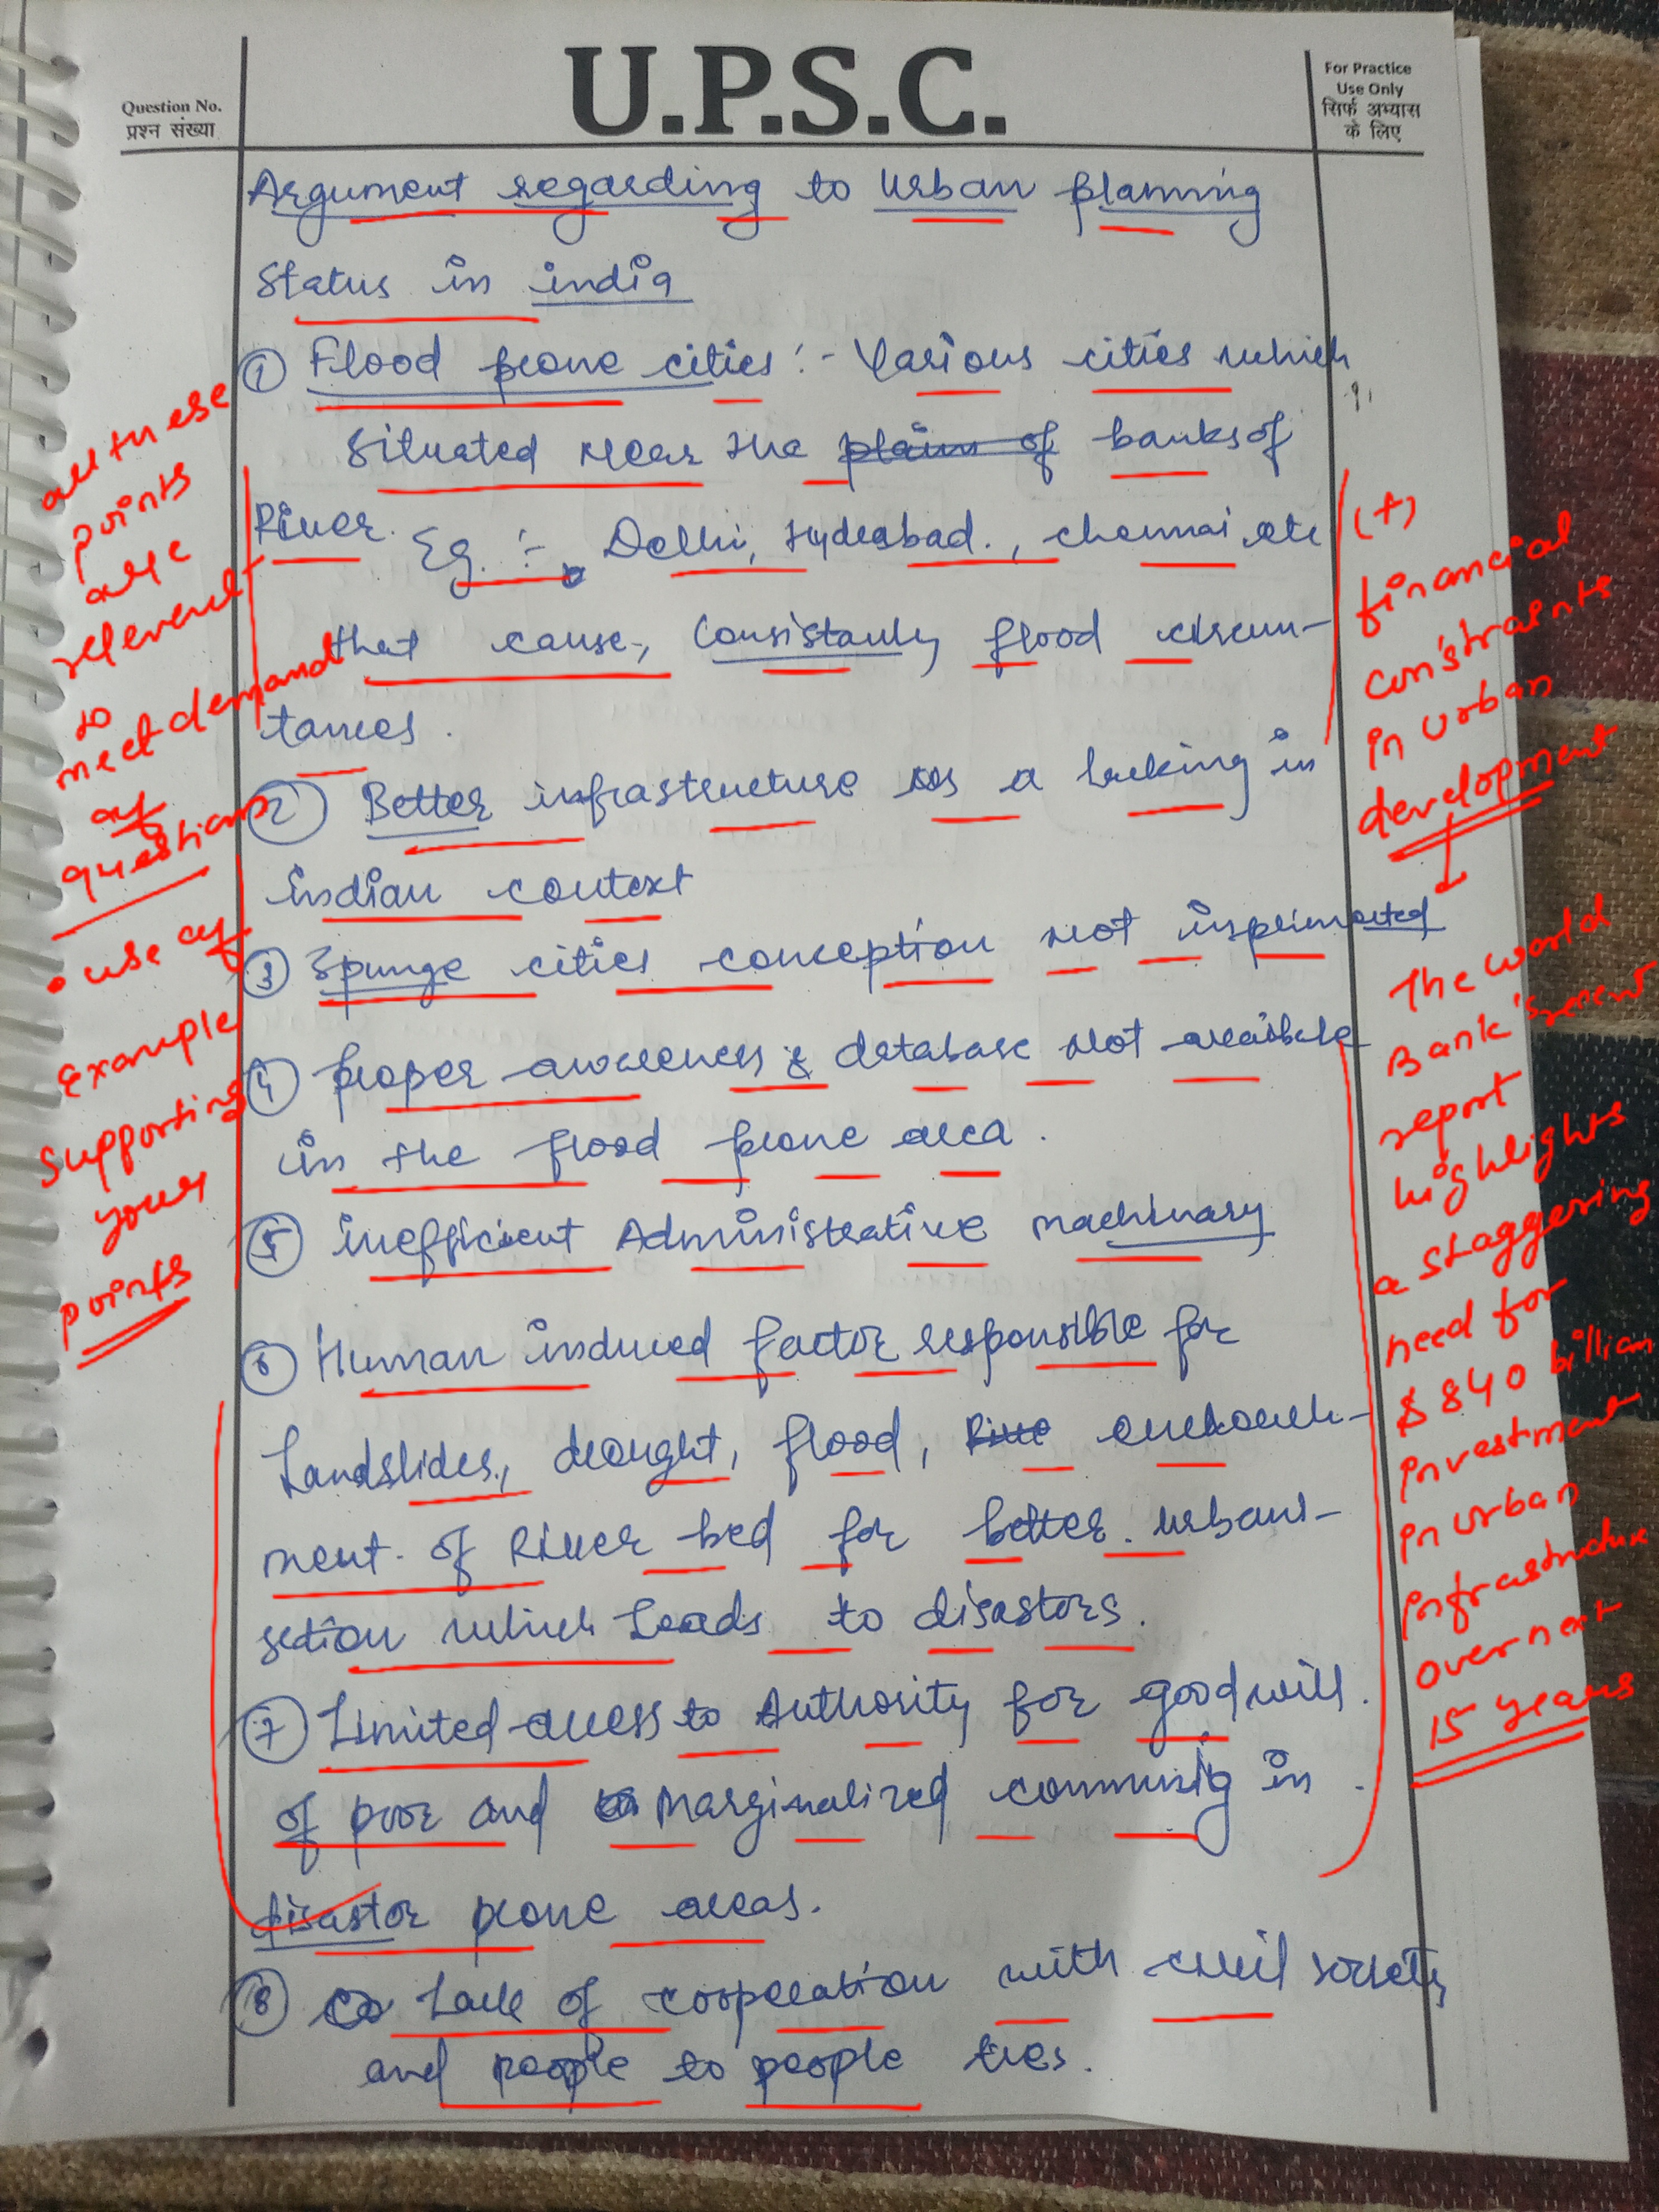 U.P.S.C.
Question No.
प्रश्न संख्या
For Practice
Use Only
सिर्फ अभ्यास
के लिए
Argument regarding to Urban planning
Status in india
① Flood prone cities :- Various cities which
situated near the plains of banks of
River. Eg. :- Delhi, Hyderabad, chennai, etc
that cause, consistanly flood circum-
tances.
② Better infrastructure is a lacking in
indian context
③ Spunge cities conception not implimented
④ proper awareness & database not available
in the flood prone area.
⑤ inefficient Administrative machinary
⑥ Human induced factor responsible for
Landslides, drought, flood, encroach-
ment of River bed for better urbani-
sation which leads to disastors.
⑦ Limited access to Authority for goodwill
of poor and marginalized in
disastor prone areas.
⑧ Lack of cooperation with civil society
and people to people ties.
all these
points
are
relevent
to
meet demand
of
questions
• use of
Example
supporting
your
points
(+)
financial
constraints
in urban
development
↓
The world
Bank's recent
report
highlights
a staggering
need for
$ 840 billion
investment
in urban
infrastructure
over next
15 years